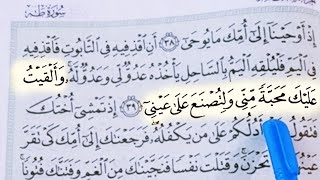 سورة طه
إِذْ أَوْحَيْنَا إِلَىٰ أُمِّكَ مَا يُوحَىٰ ٣٨ أَنِ اقْذِفِيهِ فِي التَّابُوتِ فَاقْذِفِيهِ
فِي الْيَمِّ فَلْيُلْقِهِ الْيَمُّ بِالسَّاحِلِ يَأْخُذْهُ عَدُوٌّ لِي وَعَدُوٌّ لَهُ وَأَلْقَيْتُ
عَلَيْكَ مَحَبَّةً مِنِّي وَلِتُصْنَعَ عَلَىٰ عَيْنِي ٣٩ إِذْ تَمْشِي أُخْتُكَ
فَتَقُولُ أَدُلُّكُمْ عَلَىٰ مَنْ يَكْفُلُهُ فَرَجَعْنَاكَ إِلَىٰ أُمِّكَ كَيْ تَقَرَّ
تَحْزَنَ وَقَتَلْتَ نَفْسًا فَنَجَّيْنَاكَ مِنَ الْغَمِّ وَفَتَنَّاكَ فُتُونًا